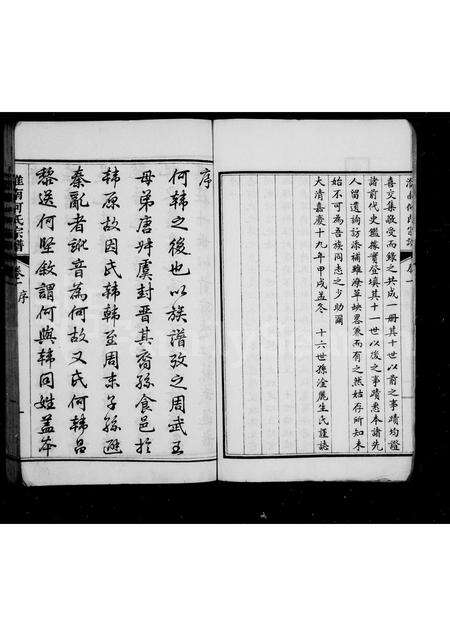 淮南何氏宗譜 卷一
喜交集敬受而錄之共成一冊其十世以前之事蹟均證
諸前代史鑑據實登填其十一世以後之事蹟悉本諸先
人留遺詢訪添補雖潦草缺畧箋而有之然姑存所知未
始不可為吾族同志之少助爾
大清嘉慶十九年甲戌孟冬 十六世孫淦麗生氏謹誌
序
何韓之後也以族譜攷之周武王
母弟唐叔虞封晋其裔孫食邑於
韓原故因氏韓韓至周末子孫避
秦亂者訛音為何故又氏何韓昌
黎送何堅敘謂何與韓同姓蓋本
淮南何氏宗譜 卷一 序 一